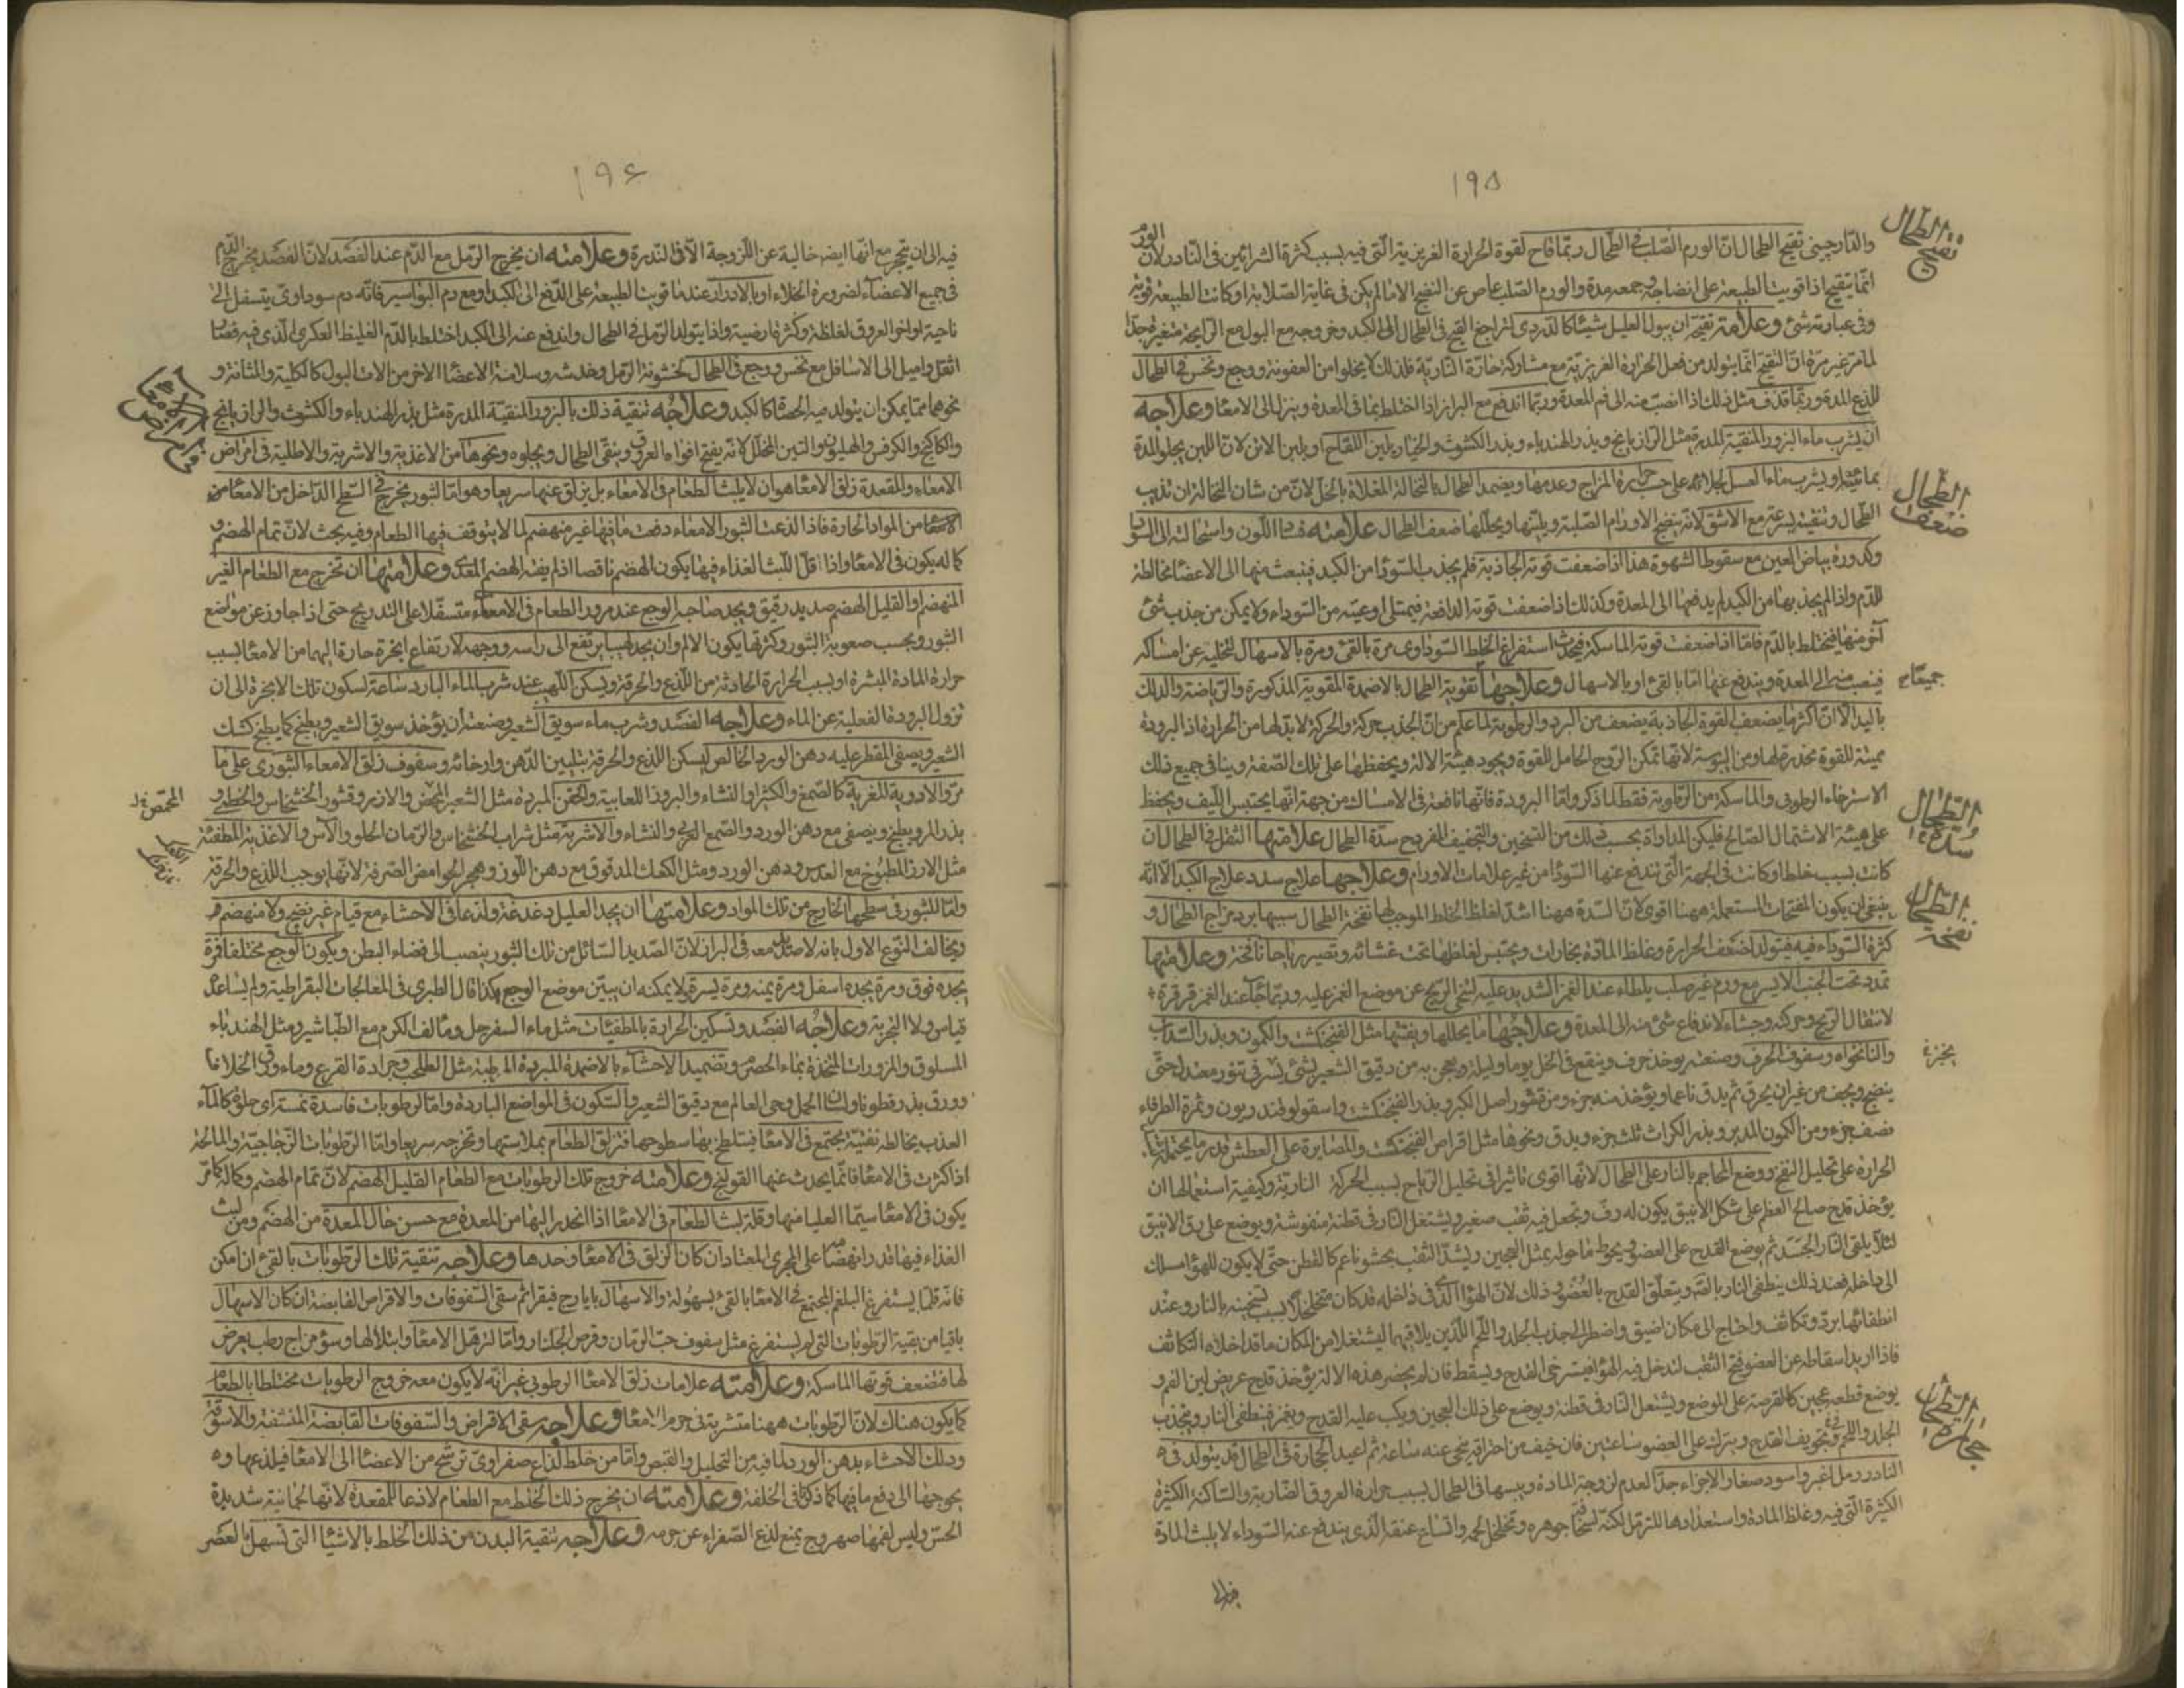 ١٩٥
تقيح الطحال
والدارچيني تقيح الطحال ان الورم الصلب في الطحال ربما قاح لقوة الحرارة الغريزية التي فيه بسبب كثرة الشرائين في النادر لان الورم
انما يتقيح اذا قويت الطبيعة على انضاجه وجمعه مدة والورم الصلب عاص عن النضج الا ما لم يكن في غاية الصلابة او كانت الطبيعة قوية
وفي عبارته شئ وعلامة تقيحه ان يبول العليل شيئا كالدردي لتراجع القيح في الطحال الى الكبد وخروجه مع البول مع الرايحة متغيرة جدا
لما مر غير مرة ان التقيح انما يتولد من فعل الحرارة الغريزية مع مشاركة حارة النارية فلذلك لا يخلوا من العفونة ووجع ونخس في الطحال
للذع المدة وربما قذف مثل ذلك اذا انصب منه الى فم المعدة وربما اندفع مع البراز اذا اختلط بما في المعدة وينزل الى الامعا وعلاجه
ان يشرب ماء البزور المنقية المدرة مثل الرازيانج وبذر الهندباء وبذر الكشوث والخيار بلبن اللقاح او بلبن الاتن لان اللبن يجلو المدة
بمائيته ويشرب ماء العسل لجلائه على حسب حرارة المزاج وعدمها ويضمد الطحال بالنخالة المغلاة بالخل لان من شان النخالة ان تذيب
ضعف الطحال
الطحال وتنقيته بسرعة مع الاشق لانه ينضج الاورام الصلبة ويلينها ويحللها ضعف الطحال علامته فساد اللون واستحالته الى السواد
وكدورة بياض العين مع سقوط الشهوة هذا اذا ضعفت قوته الجاذبة فلم يجذب السودا من الكبد فينبعث منها الى الاعضا مخالطة
للدم واذا لم يجذبها من الكبد لم يدفعها الى المعدة وكذلك اذا ضعفت قوته الدافعة فيمتلى اوعيته من السوداء ولا يمكن من جذب شئ
آخر منها فيختلط بالدم فاما اذا ضعفت قوته الماسكة فيحدث استفراغ الخلط السوداوي مرة بالقئ ومرة بالاسهال لتخليه عن امساكه
فينصب منه الى المعدة ويندفع عنها اما بالقئ او بالاسهال وعلاجها تقوية الطحال بالاضمدة المقوية المذكورة والرياضة والدلك
جميعا
باليد الا ان اكثر ما يضعف القوة الجاذبة يضعف من البرد والرطوبة لما علم من ان الجذب حركة والحركة لا بد لها من الحرارة اذ البرودة
مميتة للقوة مخدرة لها ومن اليبوسة لانها تمكن الروح الحامل للقوة ويجود هيئة الالة ويحفظها على تلك الصفة وينافي جميع ذلك
الاسترخاء الرطوبي والماسكة من الرطوبة فقط لما ذكر واما البرودة فانها نافعة في الامساك من جهة انها يحتبس الليف ويحفظ
سدة الطحال
على هيئة الاشتمال الصالح فليكن المداواة بحسب ذلك من التسخين والتجفيف المفردح سدة الطحال علامتها الثقل في الطحال ان
كانت بسبب خلط او كانت في الجهة التي تندفع عنها السودا من غير علامات الاورام وعلاجها علاج سدد علاج الكبد الا انه
نفخة الطحال
ينبغي ان يكون المفتحات المستعملة ههنا اقوى لان السدة ههنا اشد لغلظ الخلط الموجب لها نفخة الطحال سببها برد مزاج الطحال و
كثرة السوداء فيه فيتولد لضعف الحرارة وغلظ المادة بخارات ويحتبس لغلظها تحت غشائه وتصير رياحا نافخة وعلامتها
تمدد تحت الجنب الايسر مع ورم غير صلب يلطاء عند الغمز الشديد عليه لتنحي الريح عن موضع الغمز عليه وربما جآء عند الغمز قرقرة
لانتقال الريح وحركته وجشاء لاندفاع شئ منه الى المعدة وعلاجها ما يحللها ويفتها مثل الفنجنكشت والكمون وبذر السداب
والنانخواه وسفوف الحرف وصنعته يوخذ حرف وينقع في الخل يوما وليلة ويعجن به من دقيق الشعير لشئ يسر في تنور معتدل حتى
بخبزه
ينضج ويجف من غير ان يحرق ثم يدق ناعما ويؤخذ منه جزء ومن قشور اصل الكبر وبذر الفنجنكشت واسقولوقندريون وثمرة الطرفاء
نصف جزء ومن الكمون المدبر وبذر الكراث ثلث جزء ويدق ونحوها مثل اقراص الفنجنكشت والمصابرة على العطش قدر ما يحتمله
الحرارة على تحليل النفخ ووضع المحاجم بالنار على الطحال لانها اقوى تاثيرا في تحليل الرياح بسبب الحركة النارية وكيفية استعمالها ان
يؤخذ قدح صالح العظم على شكل الانبيق يكون له رف وتجعل فيه ثقب صغير ويشتغل النار في قطنة منفوشة ويوضع على رف الانبيق
لئلا يلقى النار الجسد ثم يوضع القدح على العضو ويحوط ما حوله بمثل العجين ويشد الثقب بحشو ناعم كالقطن حتى لا يكون للهوا مسلك
الى داخله فعند ذلك ينطفى النار بالقدح ويتعلق القدح بالعضو وذلك لان الهوا الذي في داخله قد كان تخلخل بسبب تسخينه بالنار وعند
انطفائها برد وتكاثف واحتاج الى مكان اضيق واضطر الى جذب الجلد واللحم اللذين يلاقيهما ليشتغلا من المكان ما قد اخلاه التكاثف
فاذا اريد اسقاطه عن العضو فتح الثقب لتدخل فيه الهوا فيسترخى القدح ويسقط فان لم يحضر هذه الالة يؤخذ قدح عريض لين الفم و
يوضع قطعة عجين كالقرصة على الموضع ويشتعل النار في قطنة ويوضع على ذلك العجين ويكب عليه القدح ويغمز فينطفى النار ويجذب
حجارة الطحال
الجلد واللحم في تجويف القدح ويترك على العضو ساعتين فان خيف من احتراقه ينحى عنه ساعة ثم اعيد الحجارة في الطحال قد يتولد فيه
النادر رمل اغبر واسود صغار الاجزاء جدا لعدم لزوجة المادة ويبسها في الطحال بسبب حرارة العروق الضاربة والساكنة الكثيرة
الكثيرة التي فيه وغلظ المادة واستعدادها للترمل لكنه لسخافة جوهره وتخلخل لحمه واتساع عنقه الذي يندفع عنه السوداء لا يلبث المادة
١٩٦
فيه الى ان يتحجر مع انها ايضا خالية عن اللزوجة الا في الندرة وعلامته ان يخرج الرمل مع الدم عند الفصد لان الفصد يخرج الدم
في جميع الاعضآء لضرورة الخلاء او بالادرار عند ما قويت الطبيعة على الدفع الى الكبد او مع دم البواسير فانه دم سوداوي يتسفل الى
ناحية اواخر العروق لغلظه وكثرة ارضيته واذا يتولد الرمل في الطحال واندفع عنه الى الكبد اختلط بالدم الغليظ العكري الذي فيه فصار
اثقل واميل الى الاسافل مع نخس ووجع في الطحال لخشونة الرمل وخدشه وسلامة الاعضا الاخر من الات البول كالكلية والمثانة و
نحوهما مما يمكن ان يتولد فيه الحصاة كالكبد وعلاجه تنقية ذلك بالبزور المنقية المدرة مثل بذر الهندباء والكشوث والرازيانج
امراض الامعا
والكاكنج والكرفس والهليون والتين المخلل لانه يفتح افواه العروق وينقى الطحال ويجلوه ونحوها من الاغذية والاشربة والاطلية في امراض
الامعاء والمقعدة زلق الامعا هو ان لا يلبث الطعام في الامعاء بل يزلق عنها سريعا وهو اما لثبور يخرج في السطح الداخل من الامعا من
المواد الحارة فاذا لذعت الثبور الامعاء دفعت ما فيها غير منهضم لما لا يتوقف فيها الطعام وفيه بحث لان تمام الهضم و
كماله يكون في الامعا واذا قل اللبث الغذاء فيها يكون الهضم ناقصا اذ لم يفته الهضم المعدي وعلامتها ان تخرج مع الطعام الغير
المنهضم او القليل الهضم صديد رقيق ويجد صاحبه الوجع عند مرور الطعام في الامعاء متسفلا على التدريج حتى اذا جاوز عن مواضع
الثبور وبحسب صعوبة الثبور وكثرتها يكون الالم وان يجد لهيبا يرتفع الى راسه ووجهه لارتفاع ابخرة حارة اليهما من الامعا بسبب
حرارة المادة المبثرة او بسبب الحرارة الحادثة من اللذع والحرقة ويسكن اللهيب عند شرب الماء البارد ساعة لسكون تلك الابخرة الى ان
تزول البرودة الفعلية عن الماء وعلاجه الفصد وشرب ماء سويق الشعير وصنعته ان يؤخذ سويق الشعير ويطبخ كما يطبخ كشك
الشعير ويصفى المقطر عليه دهن الورد الخالص ليسكن اللذع والحرقة بتليين الدهن وارخائه وسفوف زلق الامعاء الثبوري على ما
المحمص
مر والادوية المغرية كالصمغ والكثيرا والنشاء والبزور اللعابية والحقن المبردة مثل الشعير المحمص والارز وقشور الخشخاش والخطمي و
بذر المرو يطبخ ويصفى مع دهن الورد والصمغ العربي والنشاء والاشربة مثل شراب الخشخاش والرمان الحلو والآس والاغذية المطفئة
مثل الارز المطبوخ مع العدس ودهن الورد ومثل الكعك المدقوق مع دهن اللوز وهجر الحوامض الصرفة لانها يوجب اللذع والحرقة
واما للثبور في سطحها الخارج من تلك المواد وعلامتها ان يجد العليل دغدغة ولذعا في الاحشاء مع قيام غير نضيج ولا منهضم
ويخالف النوع الاول بانه لا صديد معه في البراز لان الصديد السائل من تلك الثبور ينصب الى فضاء البطن ويكون الوجع مختلفا فمرة
يجده فوق ومرة يجده اسفل ومرة يمنة ومرة يسرة ولا يمكنه ان يبين موضع الوجع هكذا قال الطبري في المعالجات البقراطية ولم يساعد
قياس ولا التجربة وعلاجه الفصد وتسكين الحرارة بالمطفيات مثل ماء السفرجل وماء لف الكرم مع الطباشير ومثل الهندباء
المسلوق والمزورات المتخذة بماء الحصرم وتضميد الاحشآء بالاضمدة المبردة المرطبة مثل الطحلب وجرادة القرع وماء ورق الخلاف
وورق بذر قطونا ولسان الحمل وحي العالم مع دقيق الشعير والسكون في المواضع الباردة واما لرطوبات فاسدة تمسة اي حلوة كالمآء
العذب يخالطه تفهة يجتمع في الامعا فيتلطخ بها سطوحها فتزلق الطعام بملاستها وتخرجه سريعا واما الرطوبات الزجاجية والمالحة
اذا كثرت في الامعا فانما يحدث عنها القولنج وعلامته خروج تلك الرطوبات مع الطعام القليل الهضم لان تمام الهضم وكماله كما مر
يكون في الامعا سيما العليا منها وقلة لبث الطعام في الامعا اذا انحدر اليها من المعدة مع حسن حال المعدة من الهضم ومن لبث
الغذاء فيها قدر انهضامه على المجرى المعتاد ان كان الزلق في الامعا وحدها وعلاجه تنقية تلك الرطوبات بالقئ ان امكن
فانه قلما يستفرغ البلغم المجتمع في الامعا بالقئ بسهولة والاسهال بايارج فيقرا ثم سقي السفوفات والاقراص القابضة ان كان الاسهال
باقيا من بقية الرطوبات التي لم يستفرغ مثل سفوف حب الرمان وقرص الجلنار واما لترهل الامعا وابتلالها وسؤ مزاج رطب يعرض
لها فتضعف قوتها الماسكة وعلامته علامات زلق الامعا الرطوبي غير انه لا يكون معه خروج الرطوبات مختلطا بالطعام
كما يكون هناك لان الرطوبات ههنا متشربة في جرم الامعا وعلاجه سقى الاقراص والسفوفات القابضة المنشفة والاسوقة
ودلك الاحشاء بدهن الورد لما فيه من التحليل والقبض واما من خلط لذاع صفراوي ترشح من الاعضا الى الامعا فيلذعها و
يحوجها الى دفع ما فيها كما ذكر في الخلفة وعلامته ان يخرج ذلك الخلط مع الطعام لاذعا للمقعدة لانها لحمانية شديدة
الحس وليس لفمها صهروج يمنع لذع الصفراء عن جرمه وعلاجه تنقية البدن من ذلك الخلط بالاشيا التي تسهل بالعصر